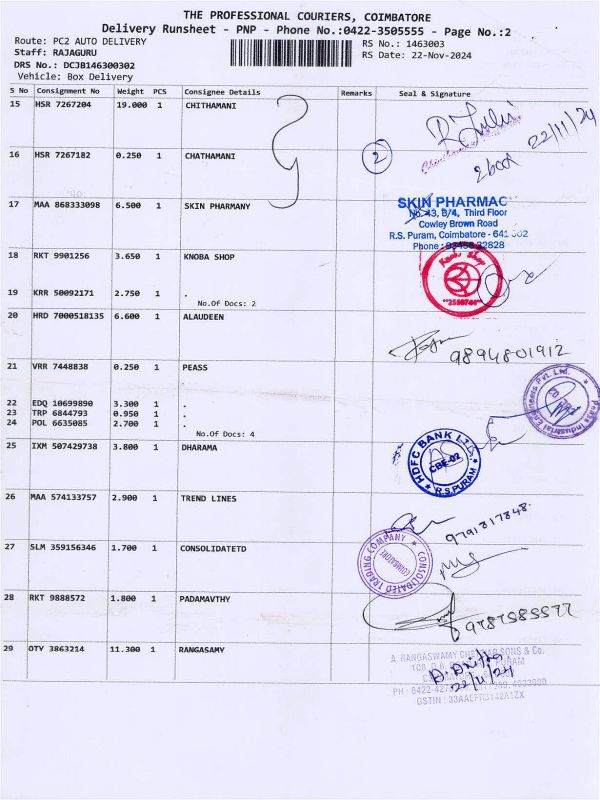 THE PROFESSIONAL COURIERS, COIMBATORE
Delivery Runsheet - PNP - Phone No.:0422-3505555 - Page No.:2
Route: PC2 AUTO DELIVERY
RS No.: 1463003
Staff: RAJAGURU
RS Date: 22-Nov-2024
DRS No.: DCJB146300302
Vehicle: Box Delivery
S No Consignment No Weight PCS Consignee Details Remarks Seal & Signature
15 HSR 7267204 19.000 1 CHITHAMANI
22/11/24
16 HSR 7267182 0.250 1 CHATHAMANI
2
2 box
17 MAA 868333098 6.500 1 SKIN PHARMANY
SKIN PHARMAC
No.43, B/4, Third Floor
Cowley Brown Road
R.S. Puram, Coimbatore - 641 002
Phone : 93456 32828
18 RKT 9901256 3.650 1 KNOBA SHOP
19 KRR 50092171 2.750 1 .
No.Of Docs: 2
20 HRD 7000518135 6.600 1 ALAUDEEN
9894801912
21 VRR 7448838 0.250 1 PEASS
22 EDQ 10699890 3.300 1 .
23 TRP 6844793 0.950 1 .
24 POL 6635085 2.700 1 .
No.Of Docs: 4
Peass Industrial Engineers Pvt. Ltd.
25 IXM 507429738 3.800 1 DHARAMA
HDFC BANK LTD.
CBE-02
R.S.PURAM
26 MAA 574133757 2.900 1 TREND LINES
9791317848
27 SLM 359156346 1.700 1 CONSOLIDATETD
CONSOLIDATED TRADING COMPANY
COIMBATORE
28 RKT 9888572 1.800 1 PADAMAVTHY
29 OTV 3863214 11.300 1 RANGASAMY
A. RANGASWAMY CHETTIAR SONS & Co.
PURAM
22/11/24
PH : 0422-42
GSTIN : 33AAEFR